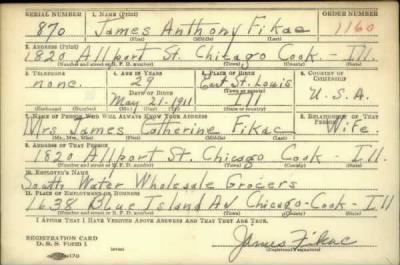 SERIAL NUMBER 1. NAME (Print) ORDER NUMBER
870 James Anthony Fikac 1160
(First) (Middle) (Last)
2. ADDRESS (Print)
1820 Allport St. Chicago Cook - Ill.
(Number and street or R. F. D. number) (Town) (County) (State)
3. TELEPHONE 4. AGE IN YEARS 5. PLACE OF BIRTH 6. COUNTRY OF CITIZENSHIP
none. 29 East St. Louis
DATE OF BIRTH (Town or county)
May 21-1911 Ill. U.S.A.
(Exchange) (Number) (Mo.) (Day) (Yr.) (State or country)
7. NAME OF PERSON WHO WILL ALWAYS KNOW YOUR ADDRESS 8. RELATIONSHIP OF THAT PERSON
Mrs James Catherine Fikac Wife.
(Mr., Mrs., Miss) (First) (Middle) (Last)
9. ADDRESS OF THAT PERSON
1820 Allport St. Chicago Cook Ill.
(Number and street or R. F. D. number) (Town) (County) (State)
10. EMPLOYER'S NAME
South Water Wholesale Grocers
11. PLACE OF EMPLOYMENT OR BUSINESS
1638 Blue Island Av Chicago-Cook-Ill
(Number and street or R. F. D. number) (Town) (County) (State)
I AFFIRM THAT I HAVE VERIFIED ABOVE ANSWERS AND THAT THEY ARE TRUE.
REGISTRATION CARD
D. S. S. FORM 1 (over) James Fikac
(Registrant's signature)